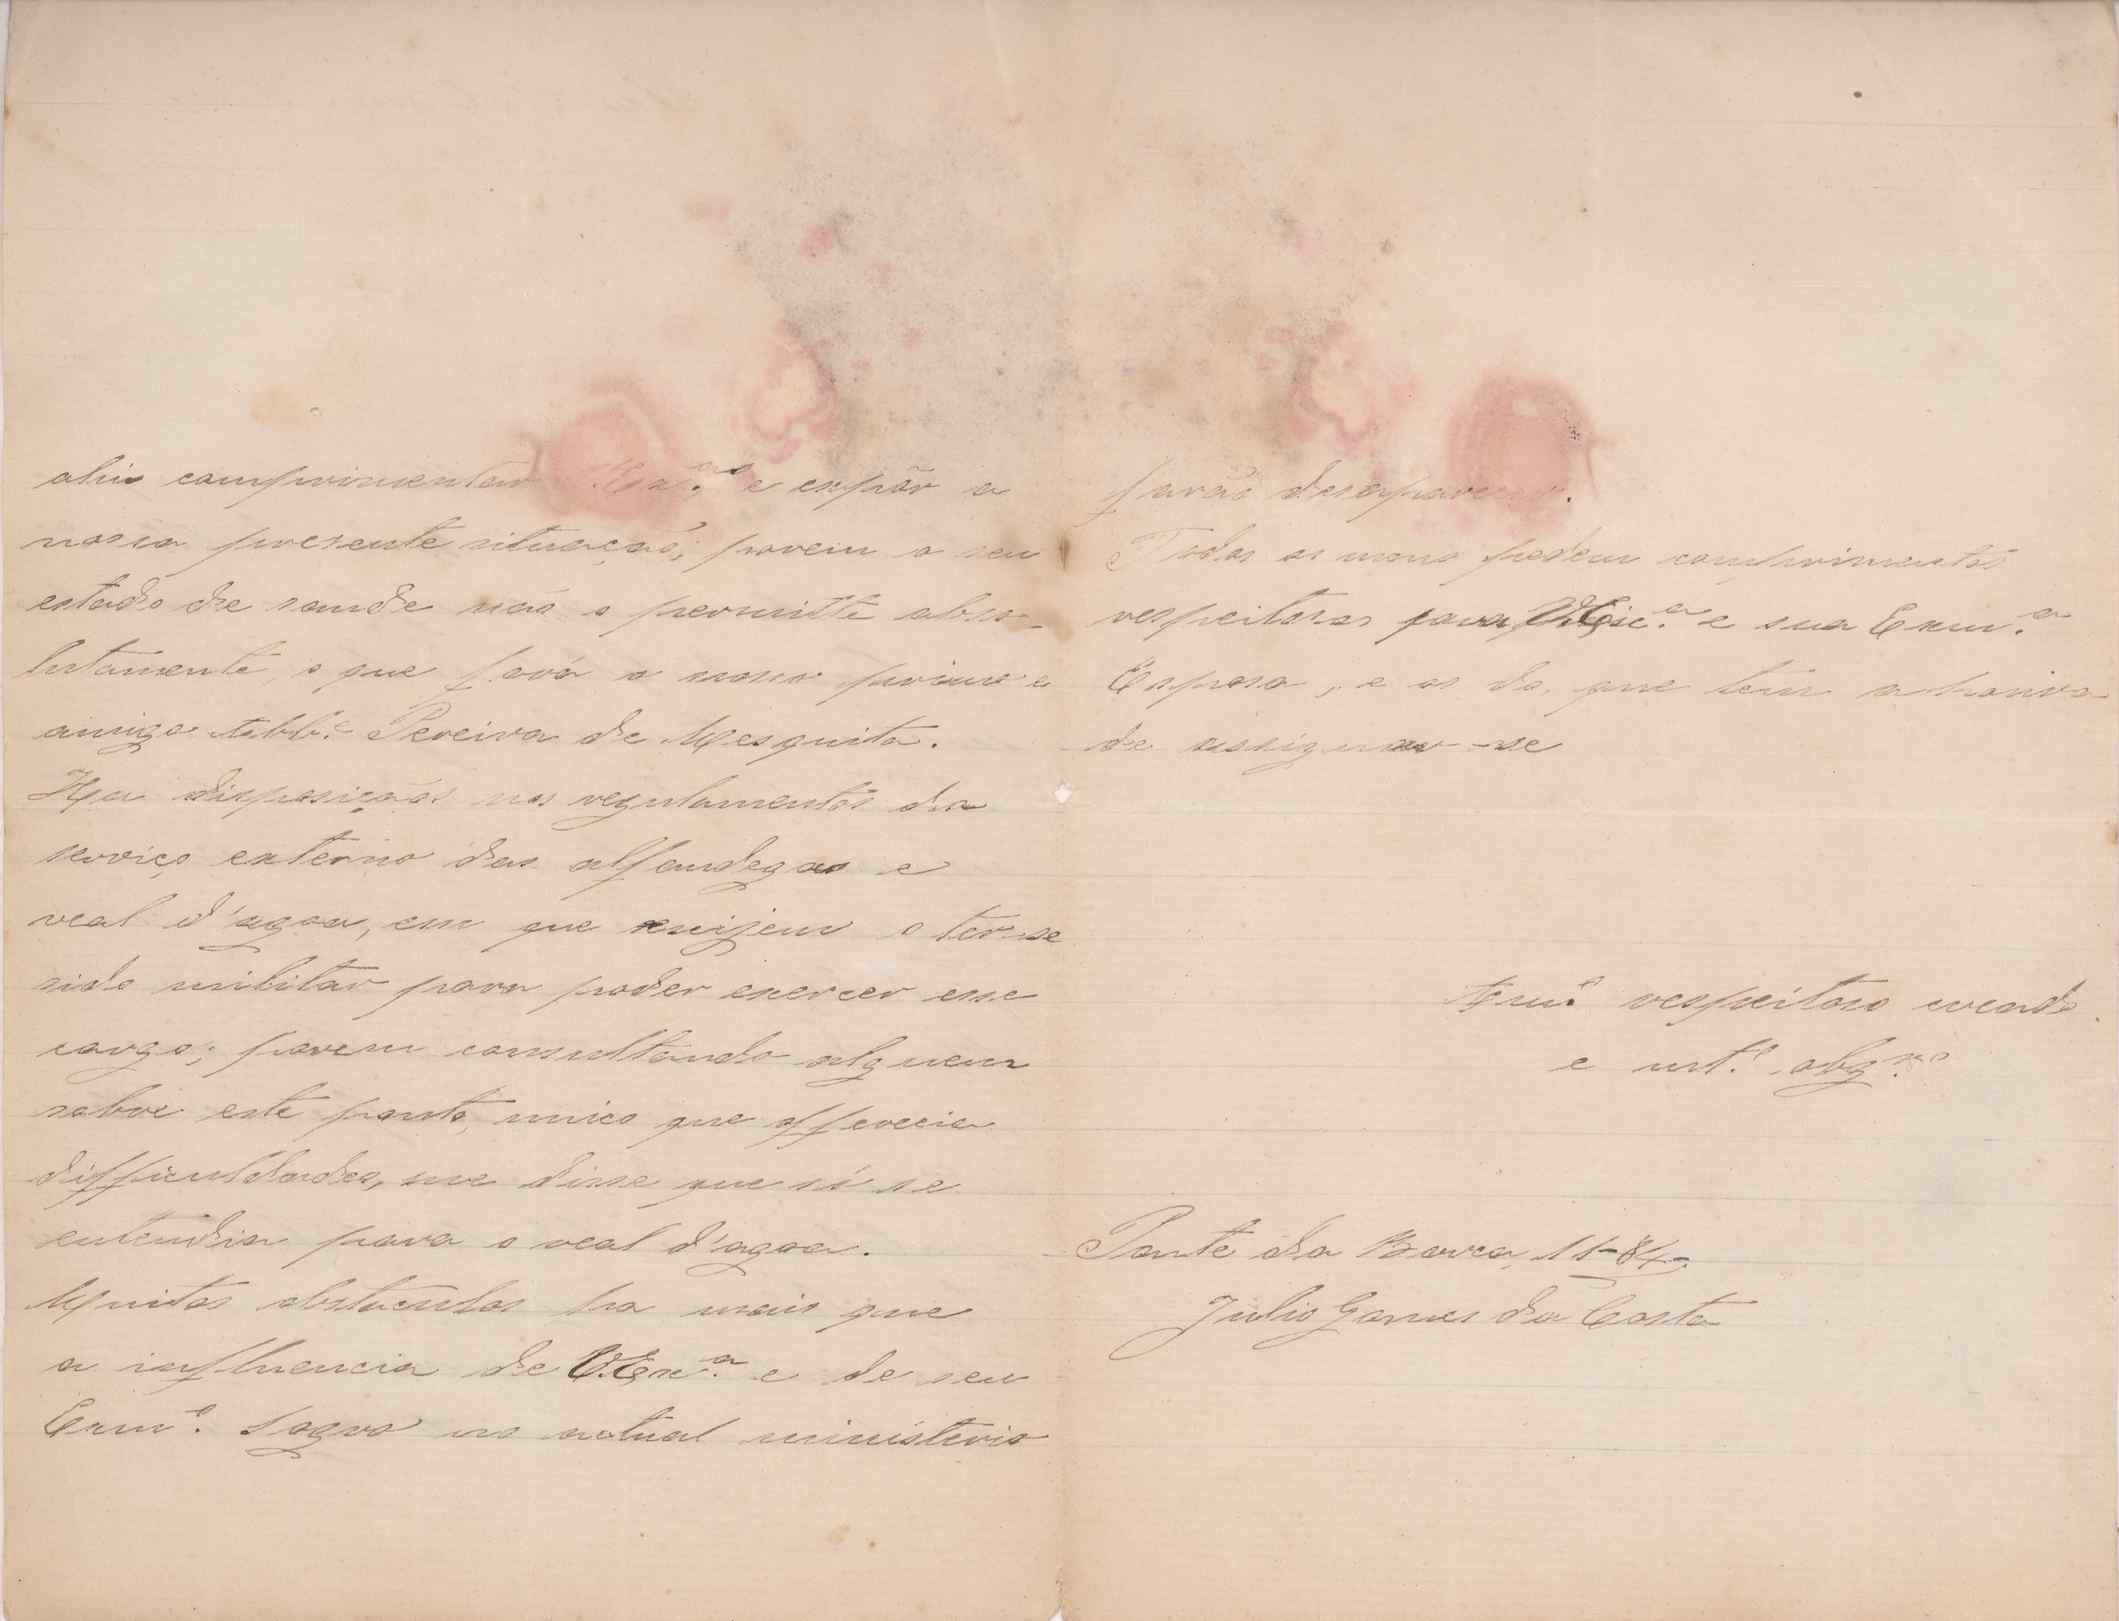 ahi comprimentar V Ex.ª e expôr a
nossa presente situação, porem o seu
estado de saude não o permitte abso-
lutamente, o que fará o nosso primo e
amigo Pereira de Mesquita.
Ha disposições nos regulamentos do
serviço externo das alfandegas e
real d'agoa, em que exijem o ter-se
sido militar para poder exercer esse
cargo; porem consultando alguem
sobre este ponto, unico que offerecia
difficuldades, me disse que só se
entendia para o real d'agoa.
Muitos obstaculos ha mais que
a influencia de V. Ex.ª e de seu
Exm.º Sogro no actual ministerio
farão desaparecer.
Todos os meus pedem comprimentos
respeitosos para V. Exc.ª e sua Exm.ª
Esposa, e os do, que tem a honra
de assignar-se
respeitoso creado
e mt.º obg.mo
Ponte da Barca, 11-84
Julio Gomes da Costa